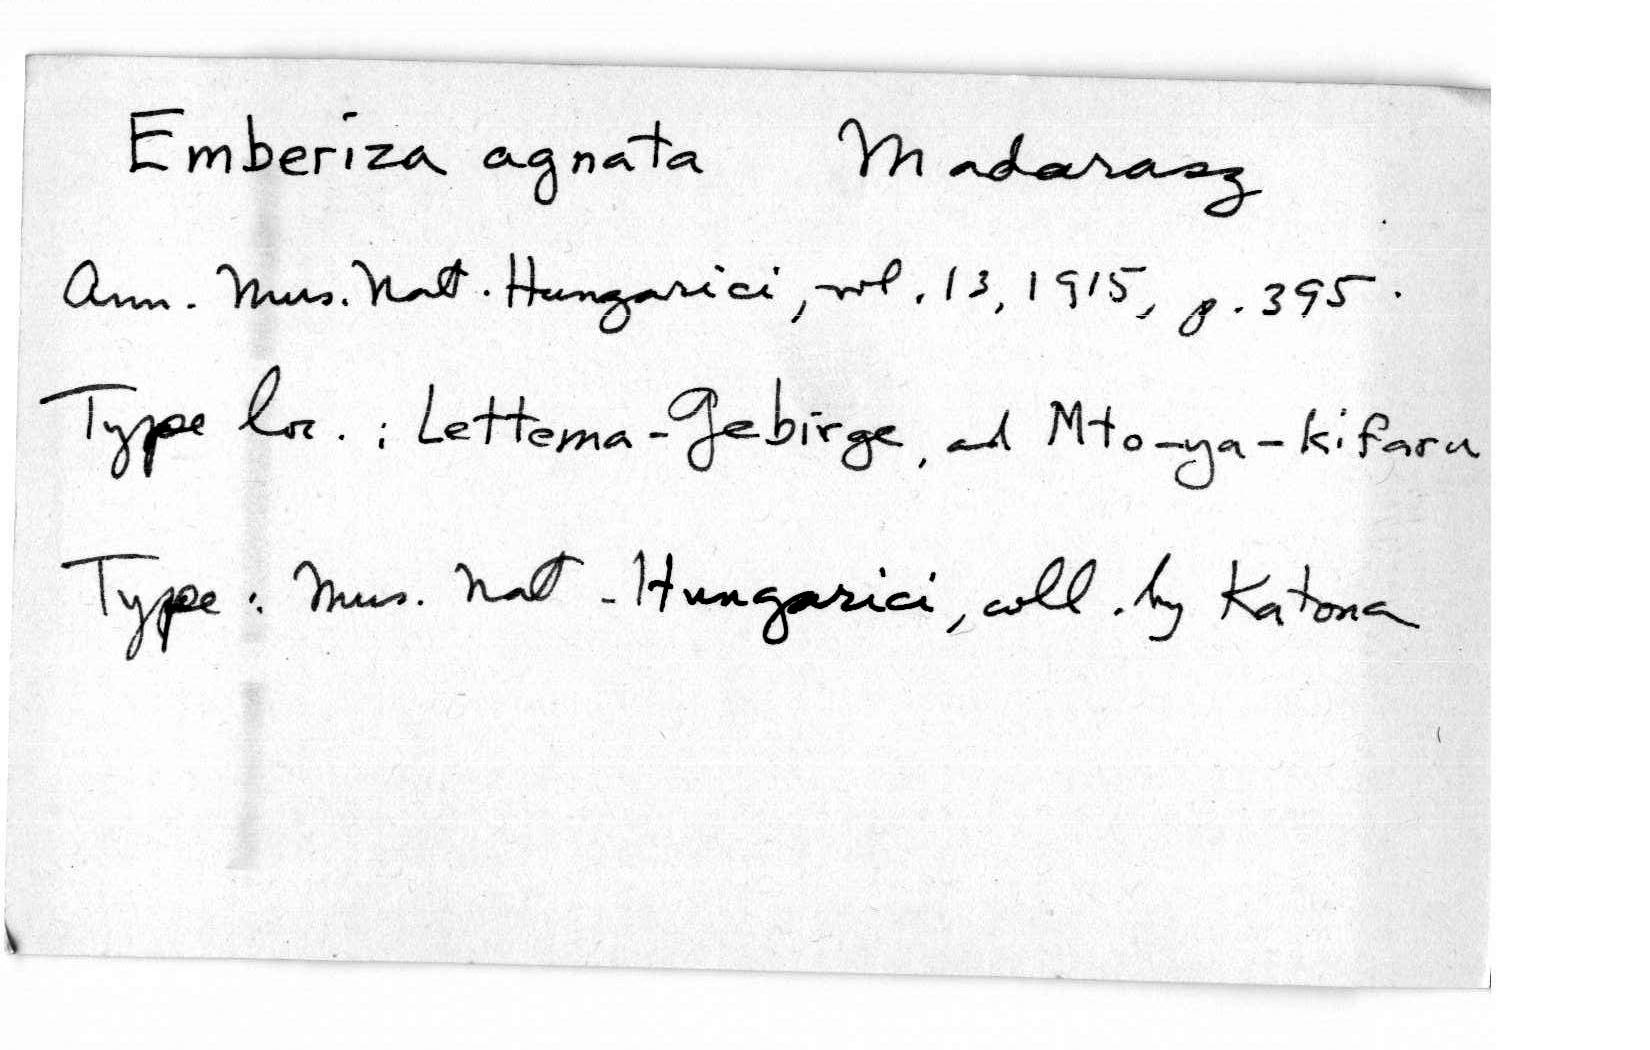 Emberiza agnata Madarasz
Ann. Mus. Nat. Hungarici, vol. 13, 1915, p. 395.
Type loc. : Lettema-Gebirge, ad Mto-ya-kifaru
Type : Mus. Nat - Hungarici, coll. by Katona